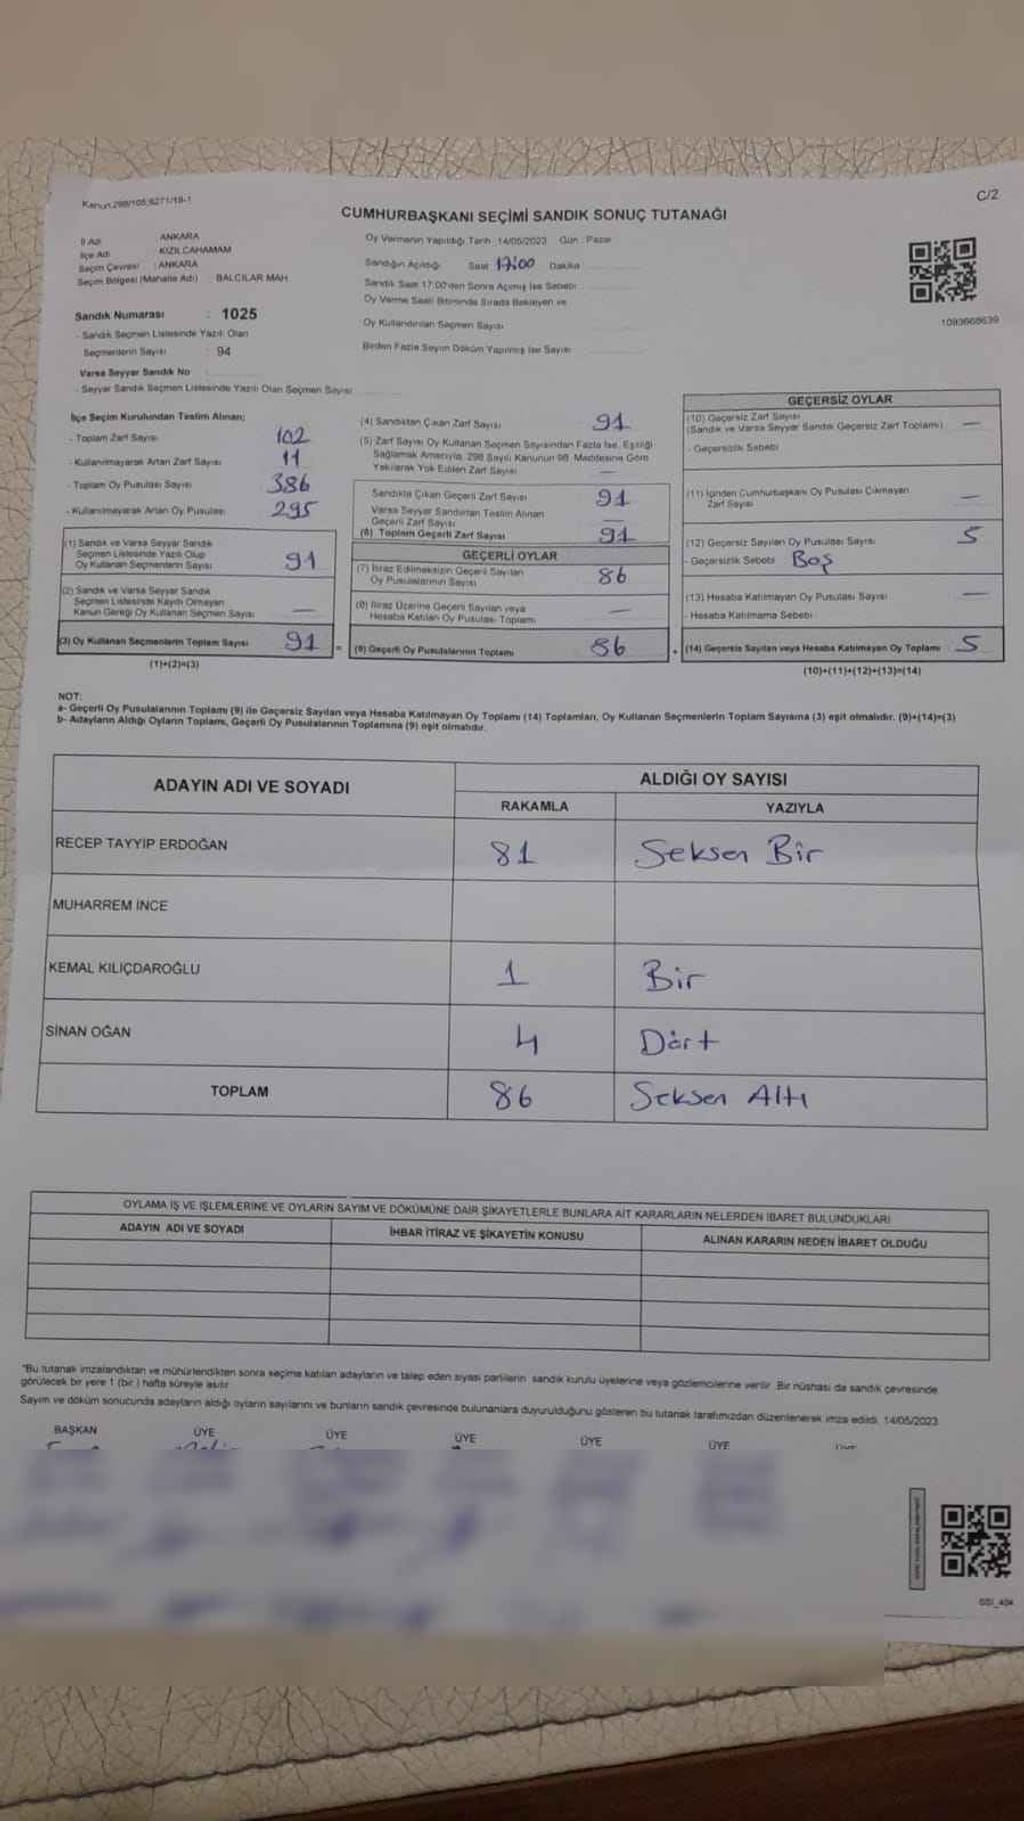 Kanun:298/105,6271/19-1
C/2
CUMHURBAŞKANI SEÇİMİ SANDIK SONUÇ TUTANAĞI
İl Adı ANKARA
İlçe Adı KIZILCAHAMAM
Seçim Çevresi : ANKARA
Seçim Bölgesi (Mahalle Adı) BALCILAR MAH.
Sandık Numarası : 1025
- Sandık Seçmen Listesinde Yazılı Olan
Seçmenlerin Sayısı : 94
Varsa Seyyar Sandık No
- Seyyar Sandık Seçmen Listesinde Yazılı Olan Seçmen Sayısı
Oy Vermenin Yapıldığı Tarih :14/05/2023 Gün : Pazar
Sandığın Açıldığı Saat 17:00 Dakika
Sandık Saat 17:00'den Sonra Açılmış İse Sebebi
Oy Verme Saati Bitiminde Sırada Bekleyen ve
Oy Kullandırılan Seçmen Sayısı
Birden Fazla Sayım Döküm Yapılmış İse Sayısı
1093668639
İlçe Seçim Kurulundan Teslim Alınan;
- Toplam Zarf Sayısı 102
- Kullanılmayarak Artan Zarf Sayısı 11
- Toplam Oy Pusulası Sayısı 386
- Kullanılmayarak Artan Oy Pusulası 295
(1) Sandık ve Varsa Seyyar Sandık
Seçmen Listesinde Yazılı Olup
Oy Kullanan Seçmenlerin Sayısı 91
(2) Sandık ve Varsa Seyyar Sandık
Seçmen Listesinde Kayıtlı Olmayan
Kanun Gereği Oy Kullanan Seçmen Sayısı —
(3) Oy Kullanan Seçmenlerin Toplam Sayısı 91 =
(1)+(2)=(3)
(4) Sandıktan Çıkan Zarf Sayısı 91
(5) Zarf Sayısı Oy Kullanan Seçmen Sayısından Fazla İse, Eşitliği
Sağlamak Amacıyla, 298 Sayılı Kanunun 98. Maddesine Göre
Yakılarak Yok Edilen Zarf Sayısı —
Sandıkta Çıkan Geçerli Zarf Sayısı 91
Varsa Seyyar Sandıktan Teslim Alınan
Geçerli Zarf Sayısı —
(6) Toplam Geçerli Zarf Sayısı 91
GEÇERLİ OYLAR
(7) İtiraz Edilmeksizin Geçerli Sayılan
Oy Pusulalarının Sayısı 86
(8) İtiraz Üzerine Geçerli Sayılan veya
Hesaba Katılan Oy Pusulası Toplamı —
(9) Geçerli Oy Pusulalarının Toplamı 86 +
GEÇERSİZ OYLAR
(10) Geçersiz Zarf Sayısı
(Sandık ve Varsa Seyyar Sandık Geçersiz Zarf Toplamı) —
- Geçersizlik Sebebi
(11) İçinden Cumhurbaşkanı Oy Pusulası Çıkmayan
Zarf Sayısı —
(12) Geçersiz Sayılan Oy Pusulası Sayısı 5
- Geçersizlik Sebebi Boş
(13) Hesaba Katılmayan Oy Pusulası Sayısı —
- Hesaba Katılmama Sebebi
(14) Geçersiz Sayılan veya Hesaba Katılmayan Oy Toplamı 5
(10)+(11)+(12)+(13)=(14)
NOT:
a- Geçerli Oy Pusulalarının Toplamı (9) ile Geçersiz Sayılan veya Hesaba Katılmayan Oy Toplamı (14) Toplamları, Oy Kullanan Seçmenlerin Toplam Sayısına (3) eşit olmalıdır. (9)+(14)=(3)
b- Adayların Aldığı Oyların Toplamı, Geçerli Oy Pusulalarının Toplamına (9) eşit olmalıdır.
ADAYIN ADI VE SOYADI ALDIĞI OY SAYISI
RAKAMLA YAZIYLA
RECEP TAYYİP ERDOĞAN 81 Seksen Bir
MUHARREM İNCE
KEMAL KILIÇDAROĞLU 1 Bir
SİNAN OĞAN 4 Dört
TOPLAM 86 Seksen Altı
OYLAMA İŞ VE İŞLEMLERİNE VE OYLARIN SAYIM VE DÖKÜMÜNE DAİR ŞİKAYETLERLE BUNLARA AİT KARARLARIN NELERDEN İBARET BULUNDUKLARI
ADAYIN ADI VE SOYADI İHBAR İTİRAZ VE ŞİKAYETİN KONUSU ALINAN KARARIN NEDEN İBARET OLDUĞU
"Bu tutanak imzalandıktan ve mühürlendikten sonra seçime katılan adayların ve talep eden siyasi partilerin sandık kurulu üyelerine veya gözlemcilerine verilir. Bir nüshası da sandık çevresinde
görülecek bir yere 1 (bir ) hafta süreyle asılır.
Sayım ve döküm sonucunda adayların aldığı oyların sayılarını ve bunların sandık çevresinde bulunanlara duyurulduğunu gösteren bu tutanak tarafımızdan düzenlenerek imza edildi. 14/05/2023
BAŞKAN ÜYE ÜYE ÜYE ÜYE ÜYE